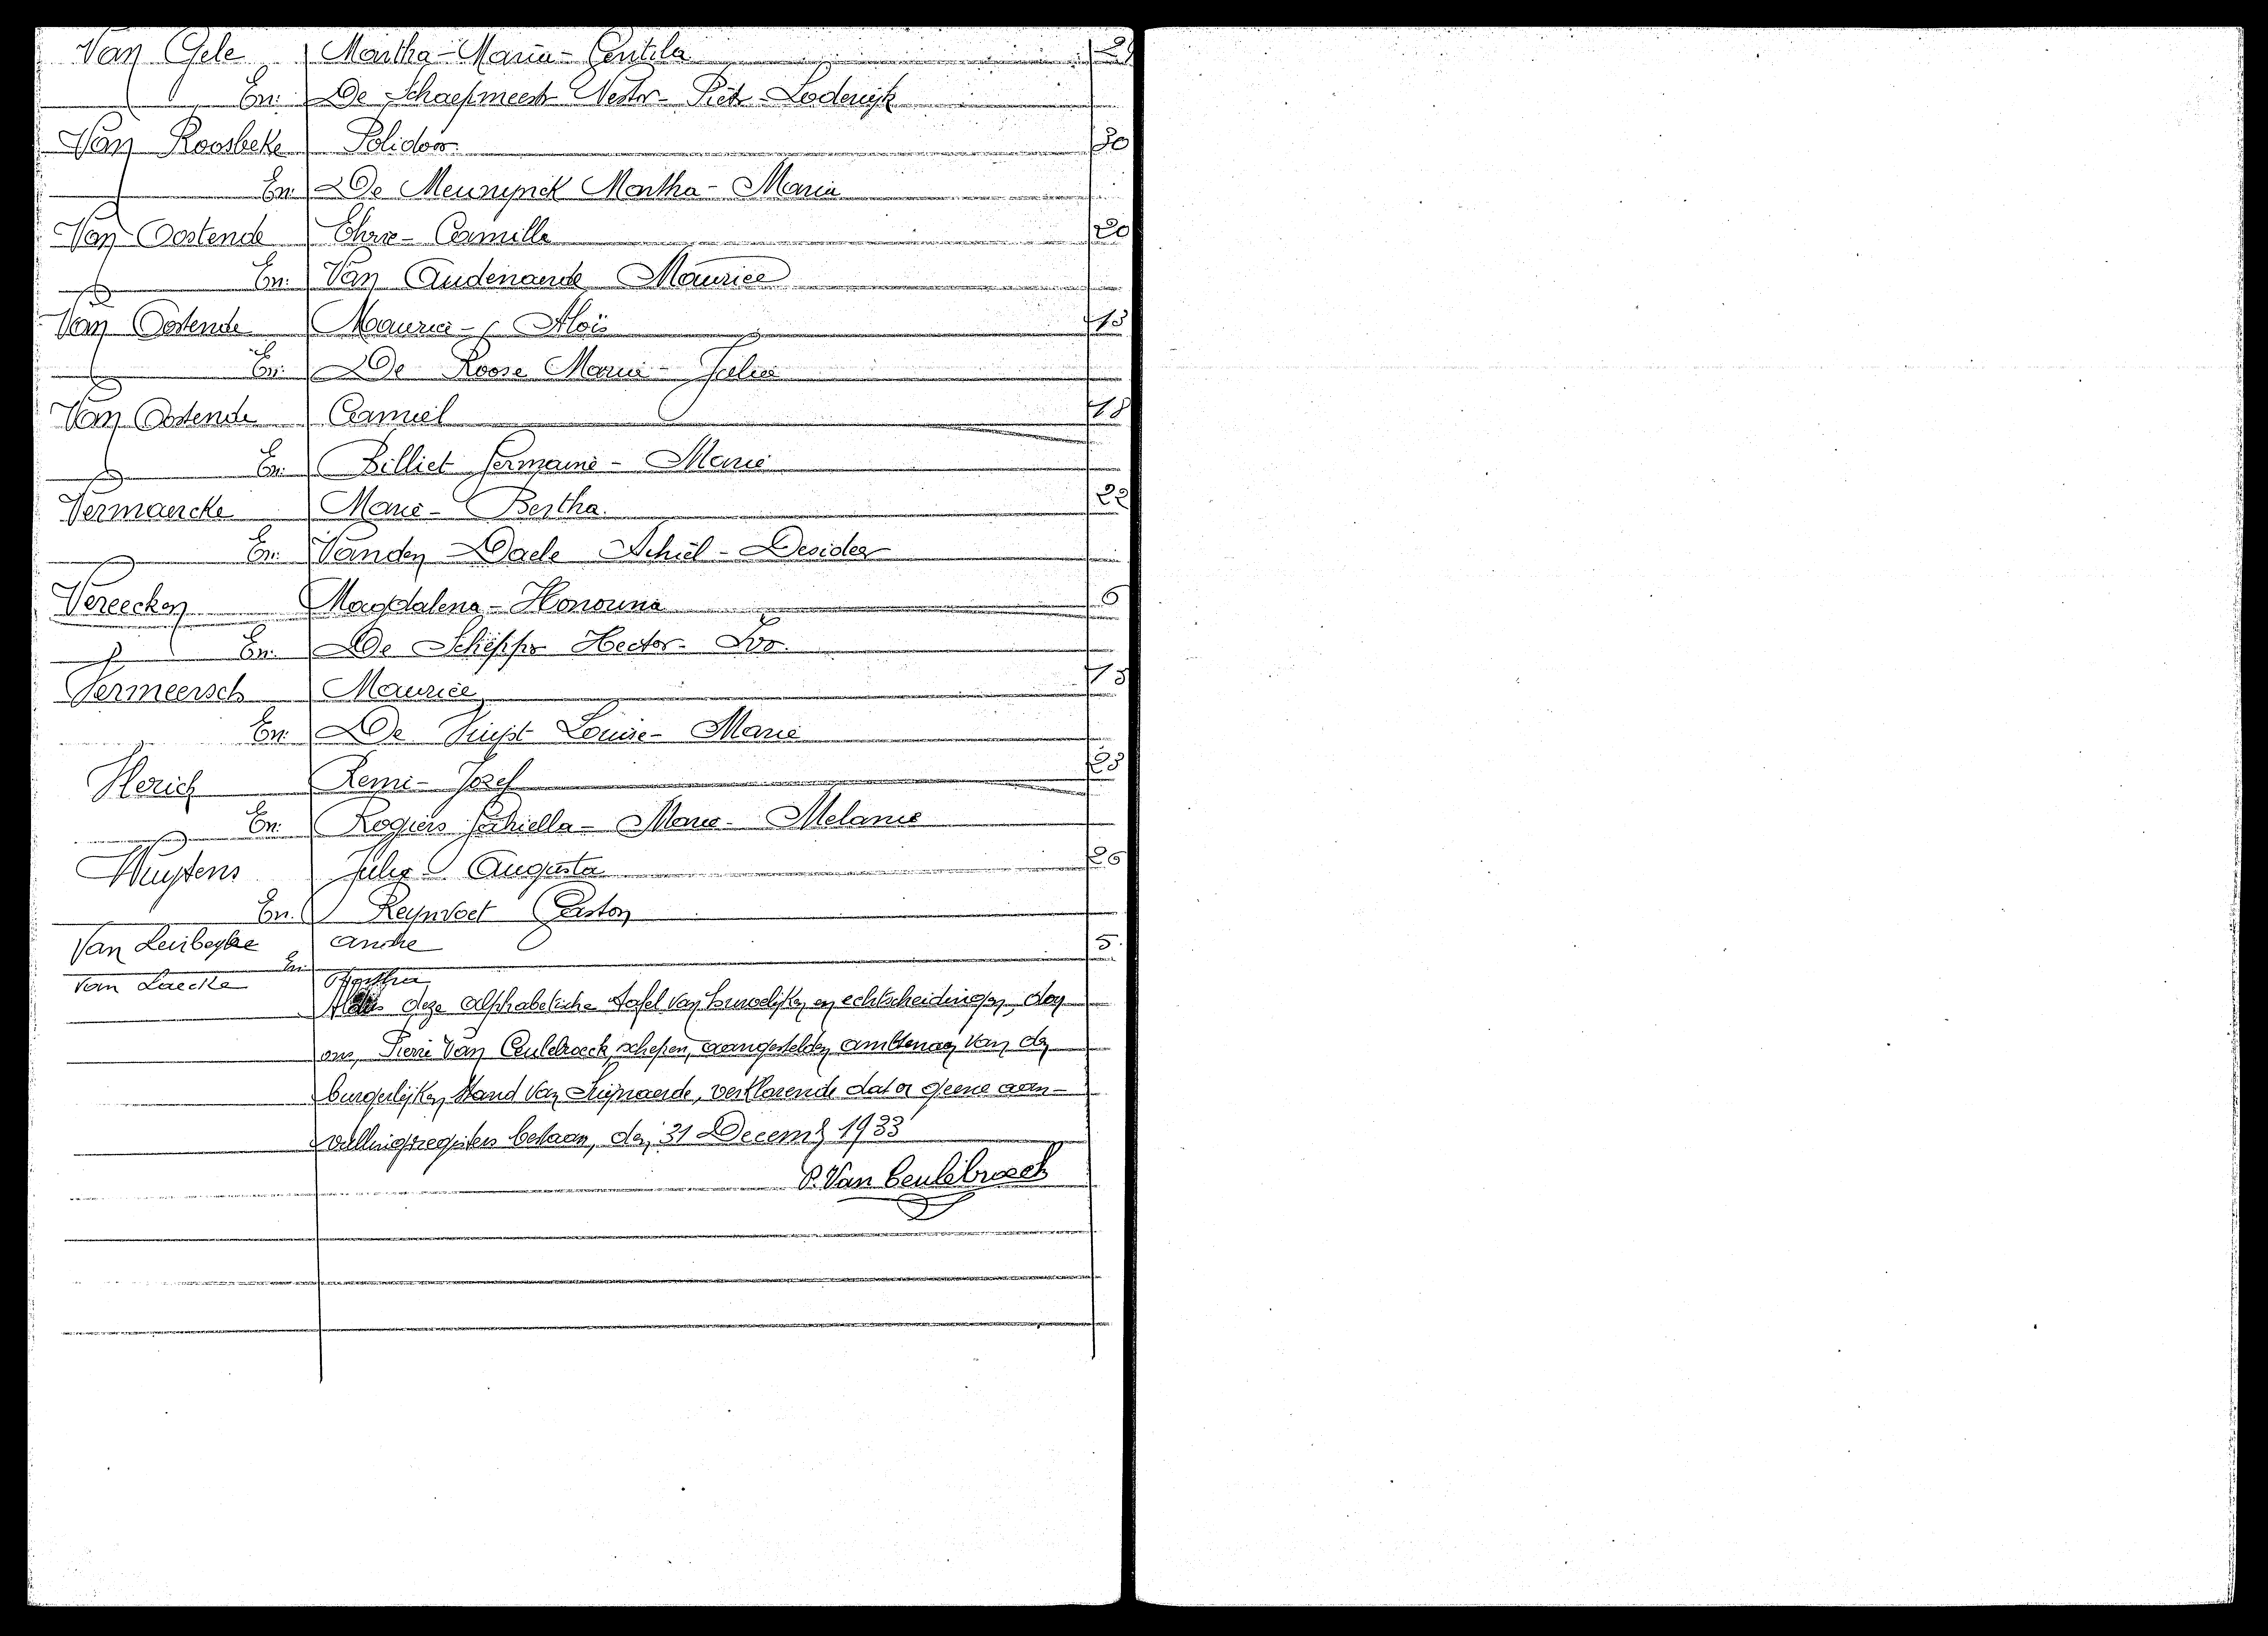 Van Gele Martha-Maria-Gentila 29
En: De Schaepmeester Nestor-Pieter-Lodewijk
Van Roosbeke Polidoor 30
En: De Meunynck Martha-Maria
Van Oostende Camilla 20
En: Van Audenaerde Maurice
Van Oostende Maurice-Aloïs 13
En: De Roose Maria-Julia
Van Oostende Camiel 18
En: Billiet Germaine-Marie
Vermaercke Marie-Bertha. 22
En: Vanden Daele Achiel-Desideer
Vereecken Magdalena-Honorina 6
En: De Schepper Hector-Ivo.
Vermeersch Maurice 15
En: De Vuyst Louise-Marie
Remi-Jozef 23
En: Rogiers Marie-Melanie
Wuytens Julia Augusta 26
En. Reynvoet Gaston
Van André 5.
En:
Van Laecke Martha
Aldus deze alphabetische tafel van huwelijken en echtscheidingen, door
ons, Pierre Van Ceulebroeck, schepen, aangestelden ambtenaar van den
burgerlijken stand van Swijnaerde, verklarende dat er geene aan-
vullingsregisters bestaan, den 31 December 1933
P. Van Ceulebroeck